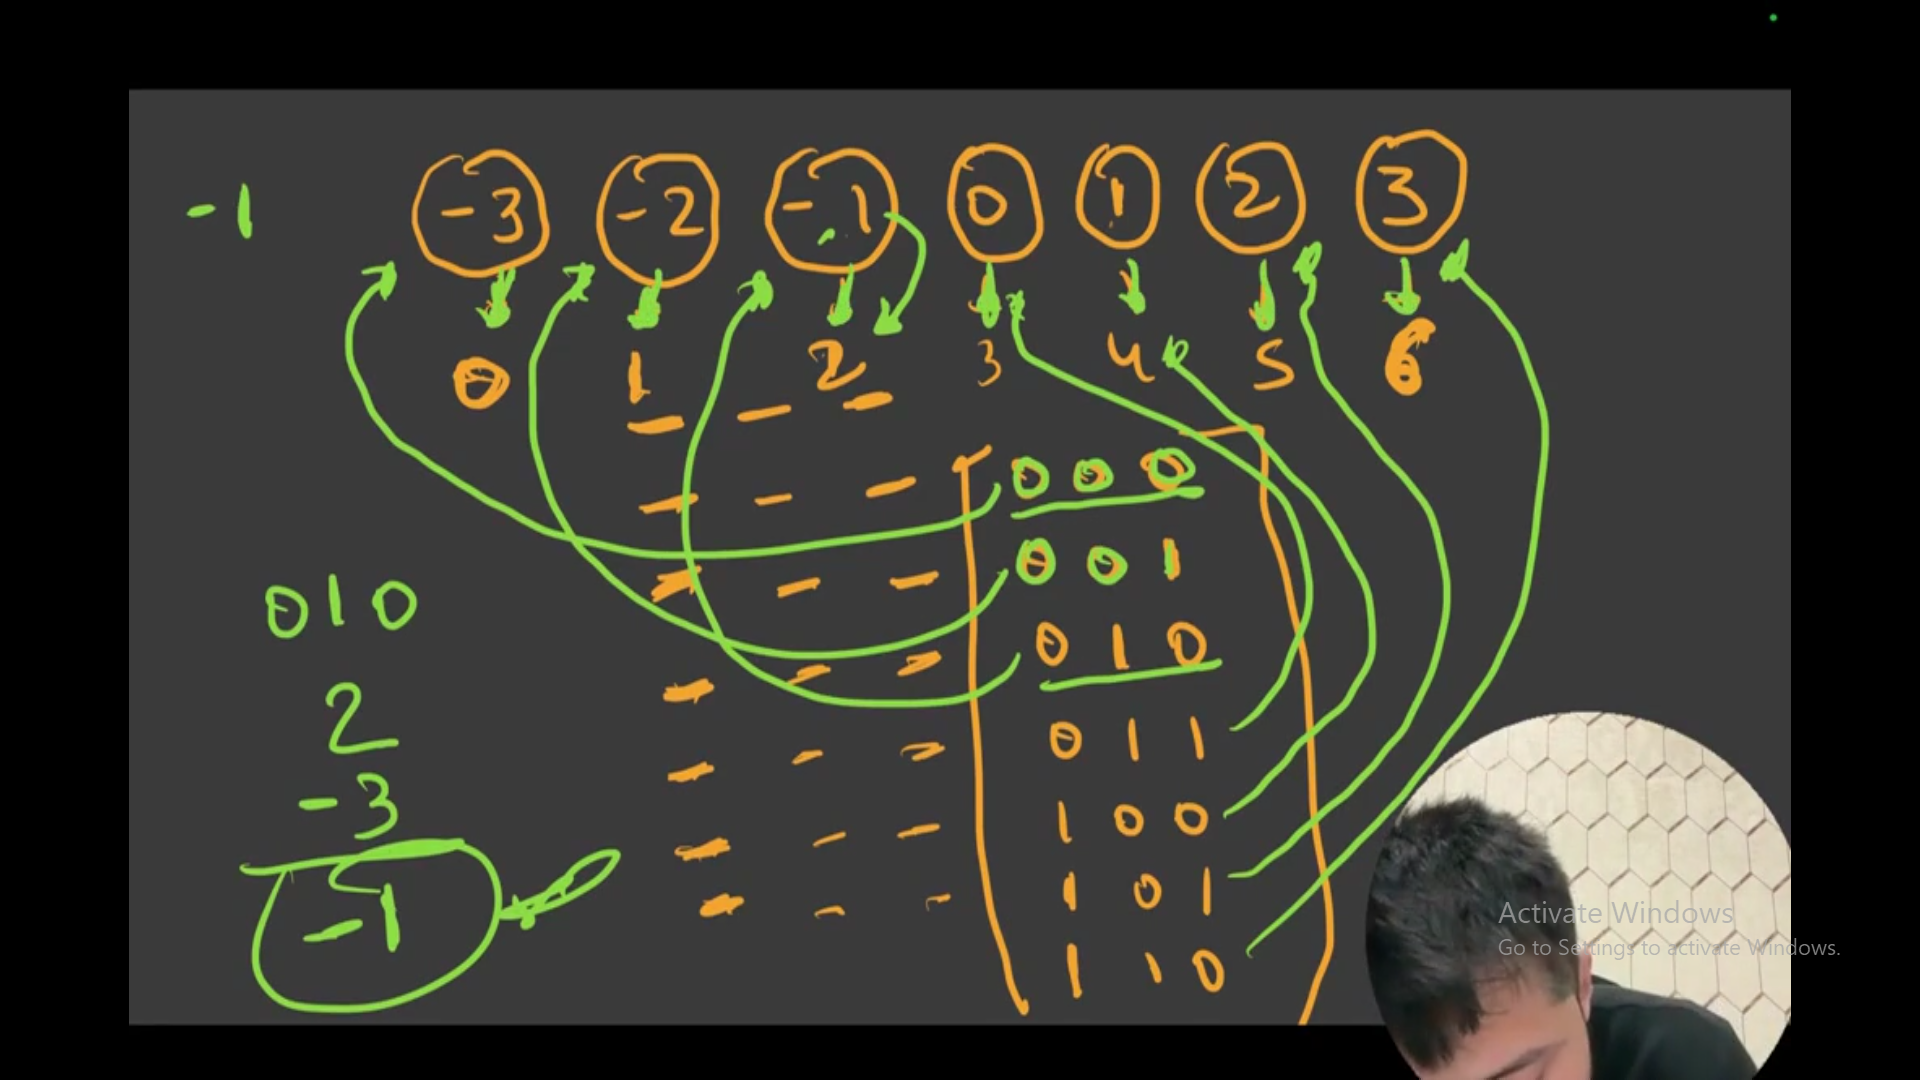 -1 -3 -2 -1 0 1 2 3
0 1 2 3 4 5 6
0 0 0
0 0 1
0 1 0
0 1 1
1 0 0
1 0 1
1 1 0
0 1 0
2
-3
-1
Activate Windows
Go to Settings to activate Windows.